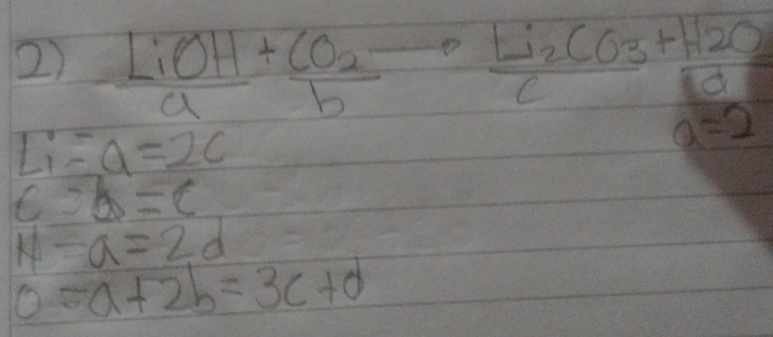 2) LiOH + CO2 → Li2CO3 + H2O
a b c d
a=2
Li=a=2c
C=b=c
H=a=2d
O=a+2b=3c+d